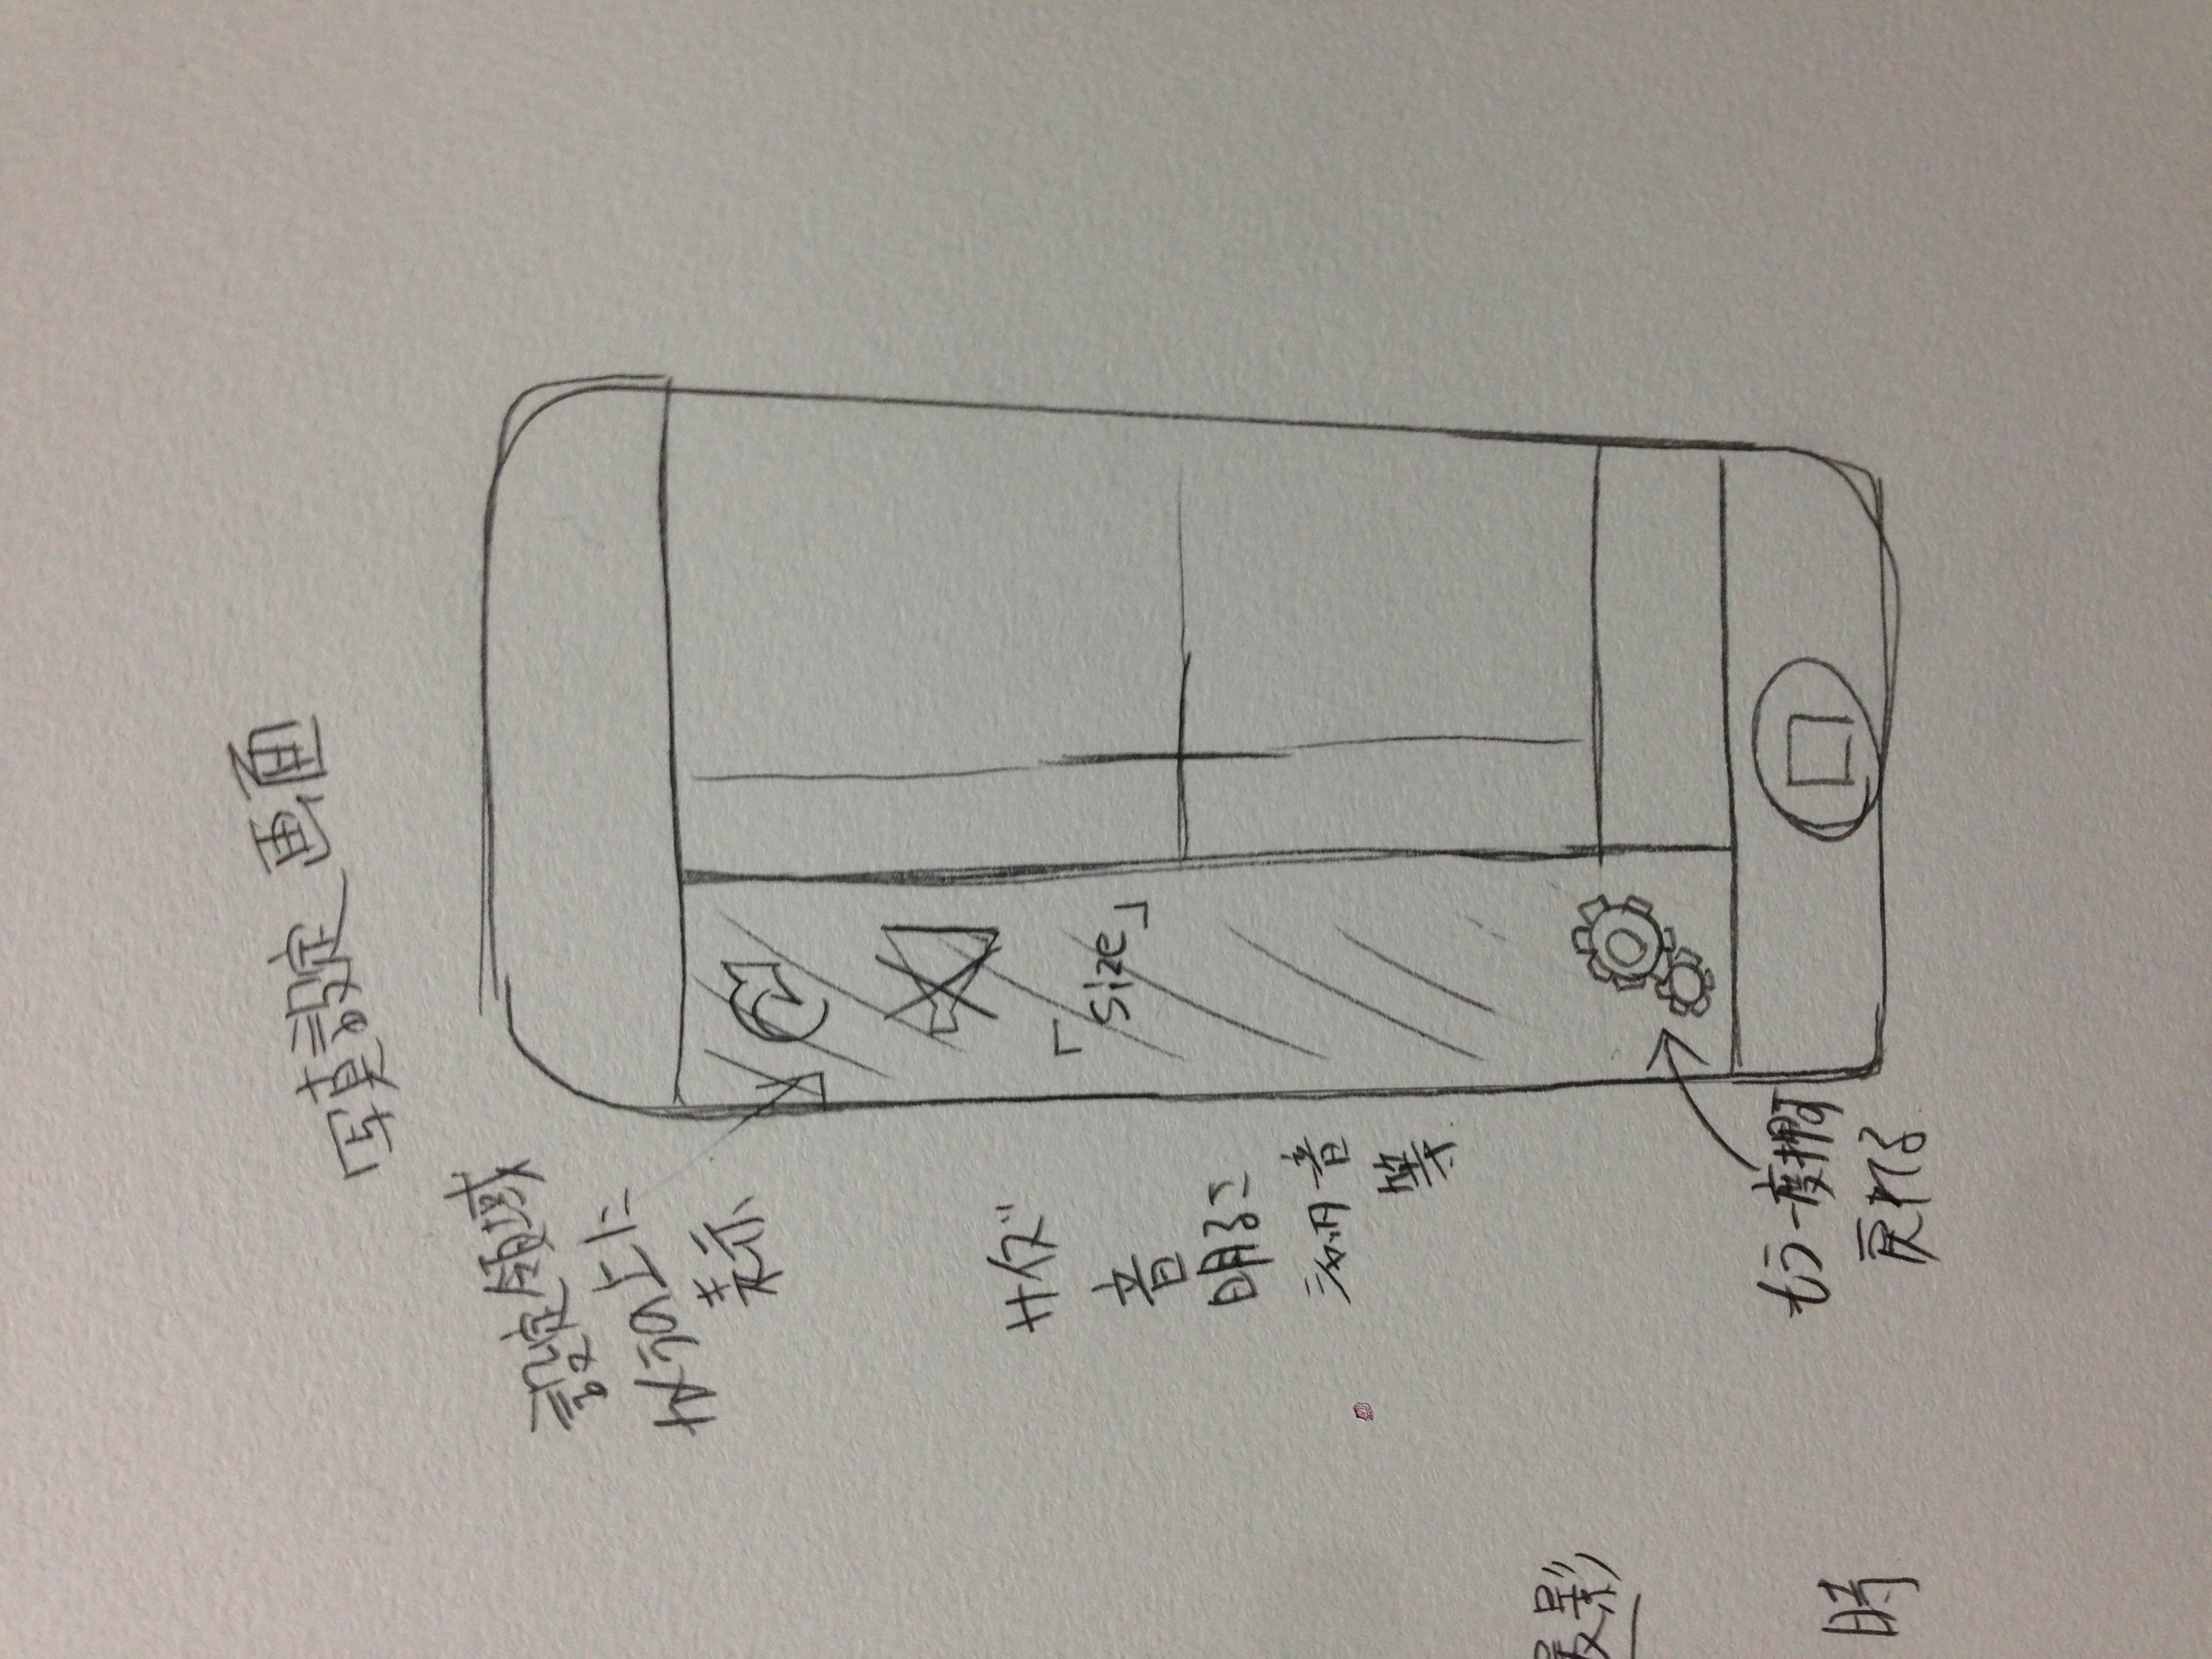 写真設定画面
設定領域
カメラの上に
表示
サイズ
音
明るさ
シャッター音
等
「size」
もう一度押す
戻れる
影
時